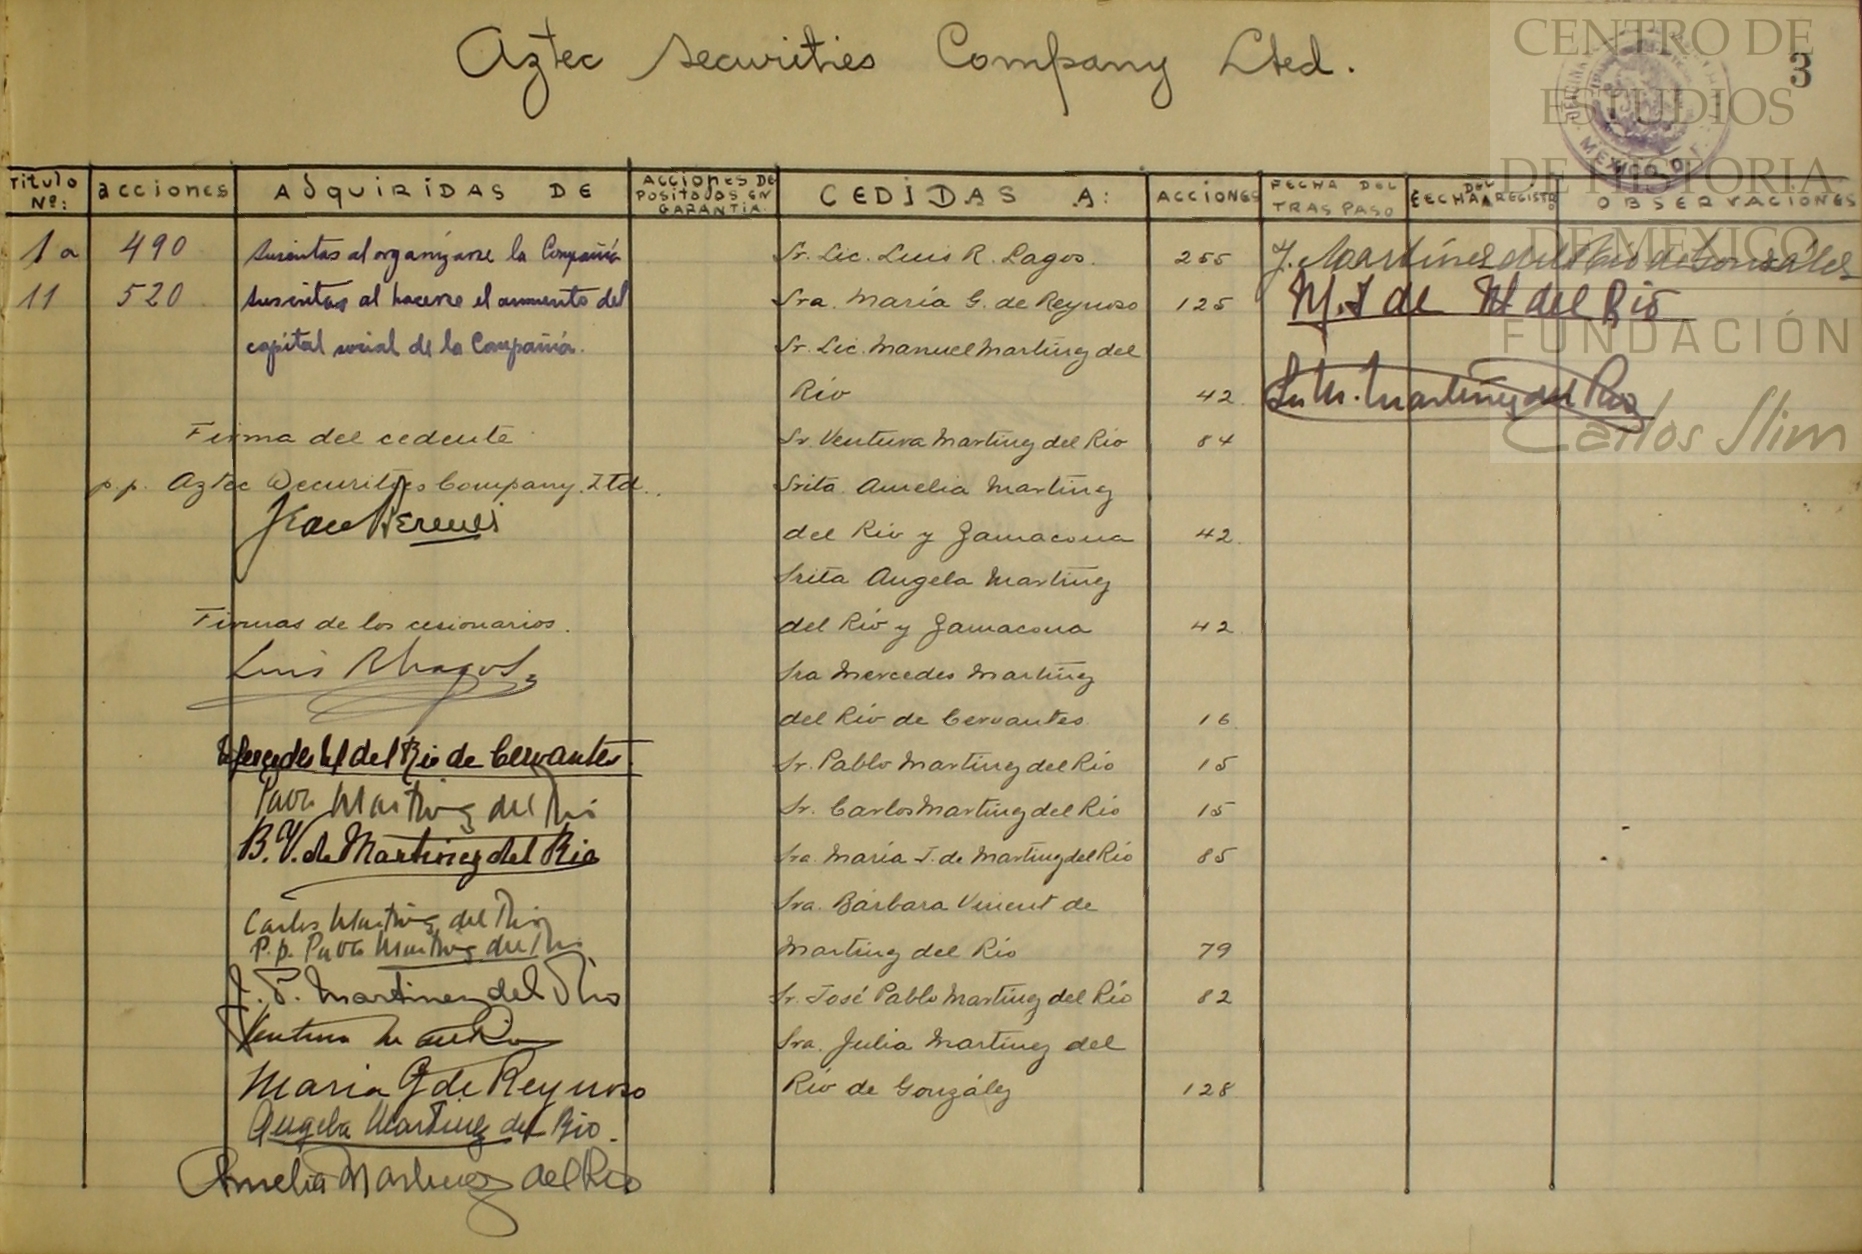 Aztec Securities Company Lted.
3
CENTRO DE
ESTUDIOS
DE HISTORIA
DE MEXICO
FUNDACIÓN
Carlos Slim
MEXICO
Titulo Nº: acciones ADQUIRIDAS DE ACCIONES DEPOSITADAS EN GARANTIA. CEDIDAS A: ACCIONES FECHA DEL TRASPASO FECHA DEL REGISTRO OBSERVACIONES
1a 490 Suscritas al organizarse la Compañía Sr. Lic. Luis R. Lagos. 255 J. Martínez del Río de González
11 520 Suscritas al hacerse el aumento del Sra. María G. de Reynoso 125 M. J de M del Río
capital social de la Compañía. Sr. Lic. Manuel Martínez del
Río 42 Martínez del Rio
Firma del cedente Sr Ventura Martínez del Río 84
p.p. Aztec Securities Company, Ltd. Srita. Amelia Martínez
del Río y Zamacona 42
Srita Angela Martínez
Firmas de los cesionarios. del Río y Zamacona 42
Luis R Lagos Sra Mercedes Martínez
del Río de Cervantes 16
Mercedes M del Rio de Cervantes Sr. Pablo Martínez del Río 15
Pablo Martínez del Río Sr. Carlos Martínez del Río 15
B. V. de Martinez del Rio Sra. María J. de Martínez del Río 85
Sra. Bárbara Vinent de
Carlos Martínez del Río
p.p. Pablo Martínez del Río Martínez del Río 79
J. P. Martinez del Rio Sr. José Pablo Martínez del Río 82
Ventura M del Rio Sra. Julia Martínez del
Maria G de Reynoso Río de González 128
Angela Martinez del Rio.
Amelia Martinez del Rio